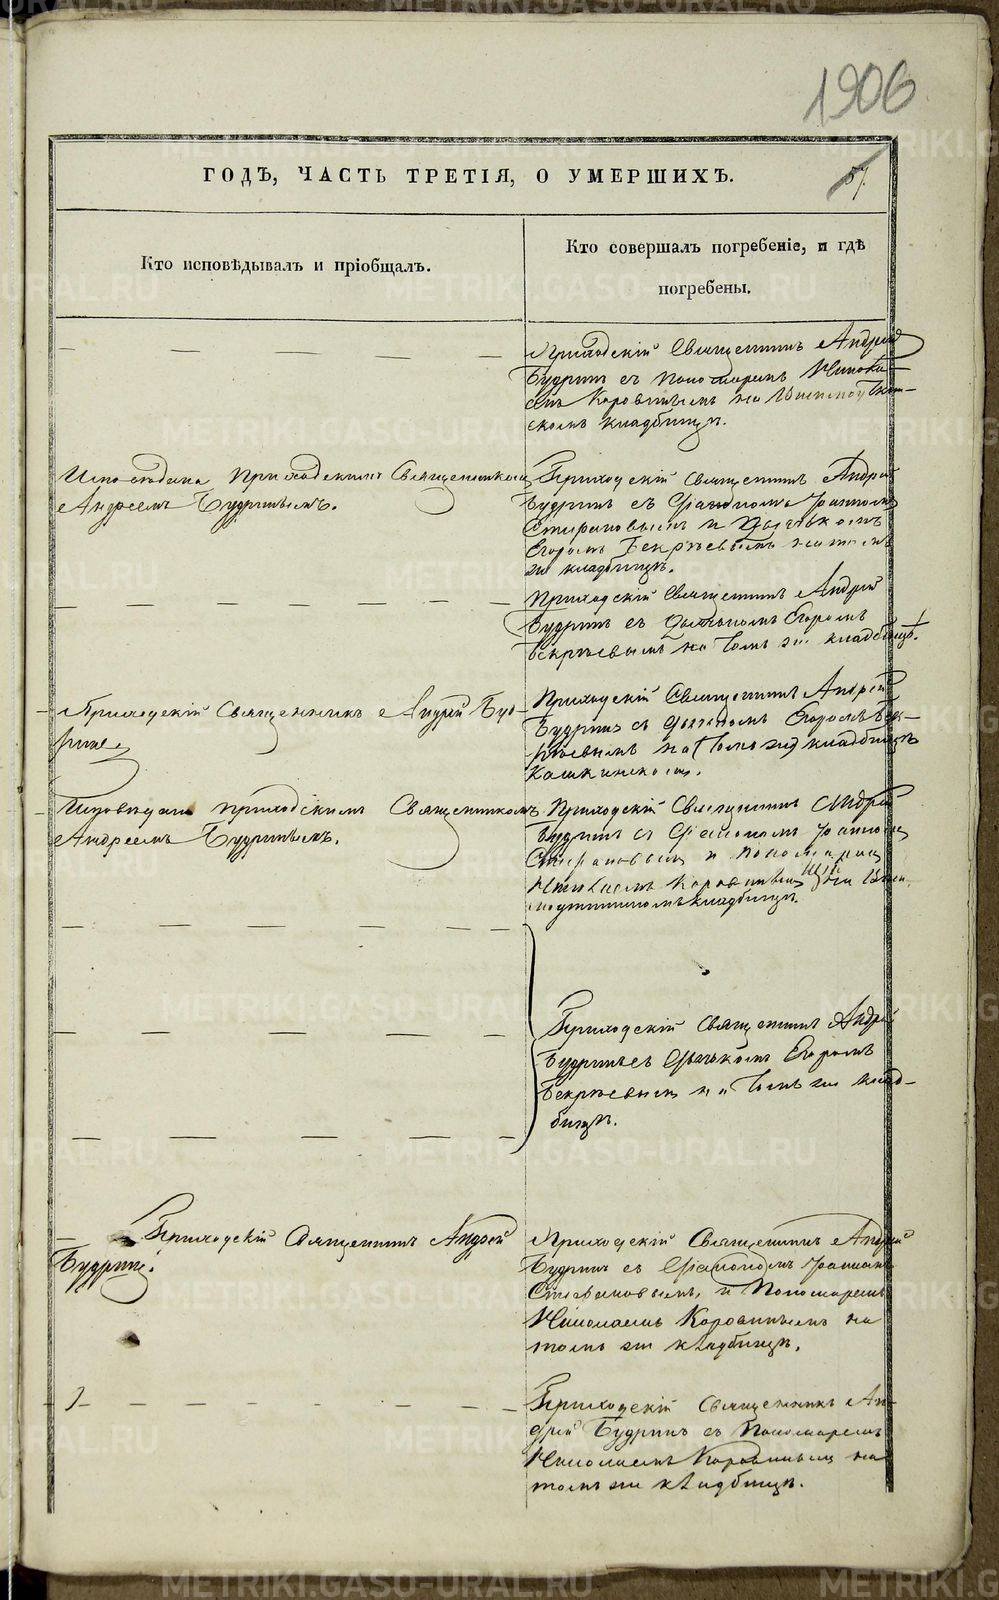 1906
ГОДЪ, ЧАСТЬ ТРЕТІЯ, О УМЕРШИХЪ.
57.
Кто исповѣдывалъ и пріобщалъ.
Кто совершалъ погребеніе, и гдѣ
погребены.
Приходскій Священникъ Андрей
Будринъ съ Пономаремъ Никола-
емъ Коровинымъ на
скомъ кладбищѣ.
Исповѣдана Приходскимъ Священникомъ
Андреемъ Будринымъ.
Приходскій Священникъ Андрей
Будринъ съ Діакономъ Іоанномъ
Стефановымъ и Дьячкомъ
Егоромъ Бекрѣевымъ на томъ
же кладбищѣ.
Приходскій Священникъ Андрей
Будринъ съ Дьячкомъ Егоромъ
Бекрѣевымъ на томъ же кладбищѣ.
Приходскій Священникъ Андрей Буд-
ринъ
Приходскій Священникъ Андрей
Будринъ съ Дьячкомъ Егоромъ Бек-
рѣевымъ на томъ же кладбищѣ
Кашкинскомъ.
Исповѣдана приходскимъ Священникомъ
Андреемъ Будринымъ.
Приходскій Священникъ Андрей
Будринъ съ Діакономъ Іоанномъ
Стефановымъ и пономаремъ
Николаемъ Коровинымъ на
кладбищѣ.
Приходскій Священникъ Андрей
Будринъ съ Дьячкомъ Егоромъ
Бекрѣевымъ на томъ же клад-
бищѣ.
Приходскій Священникъ Андрей
Будринъ.
Приходскій Священникъ Андрей
Будринъ съ Діакономъ Іоанномъ
Стефановымъ и Пономаремъ
Николаемъ Коровинымъ на
томъ же кладбищѣ.
Приходскій Священникъ Ан-
дрей Будринъ съ Пономаремъ
Николаемъ Коровинымъ на
томъ же кладбищѣ.
METRIKI.GASO-URAL.RU